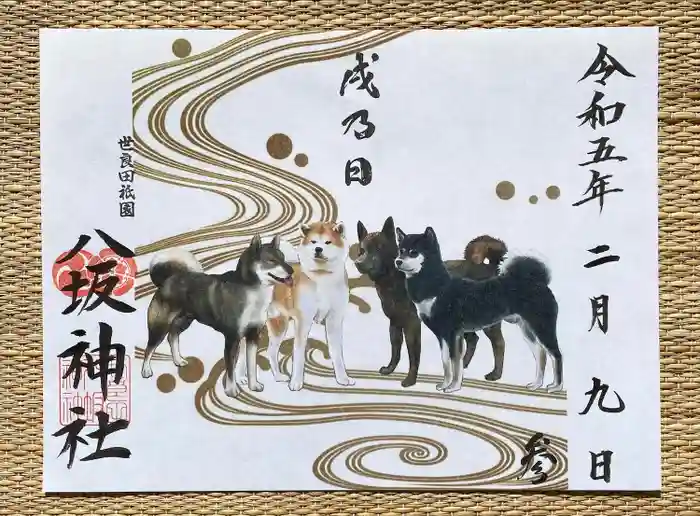 令和五年 二月 九日
戌乃日
世良田祇園
八坂神社